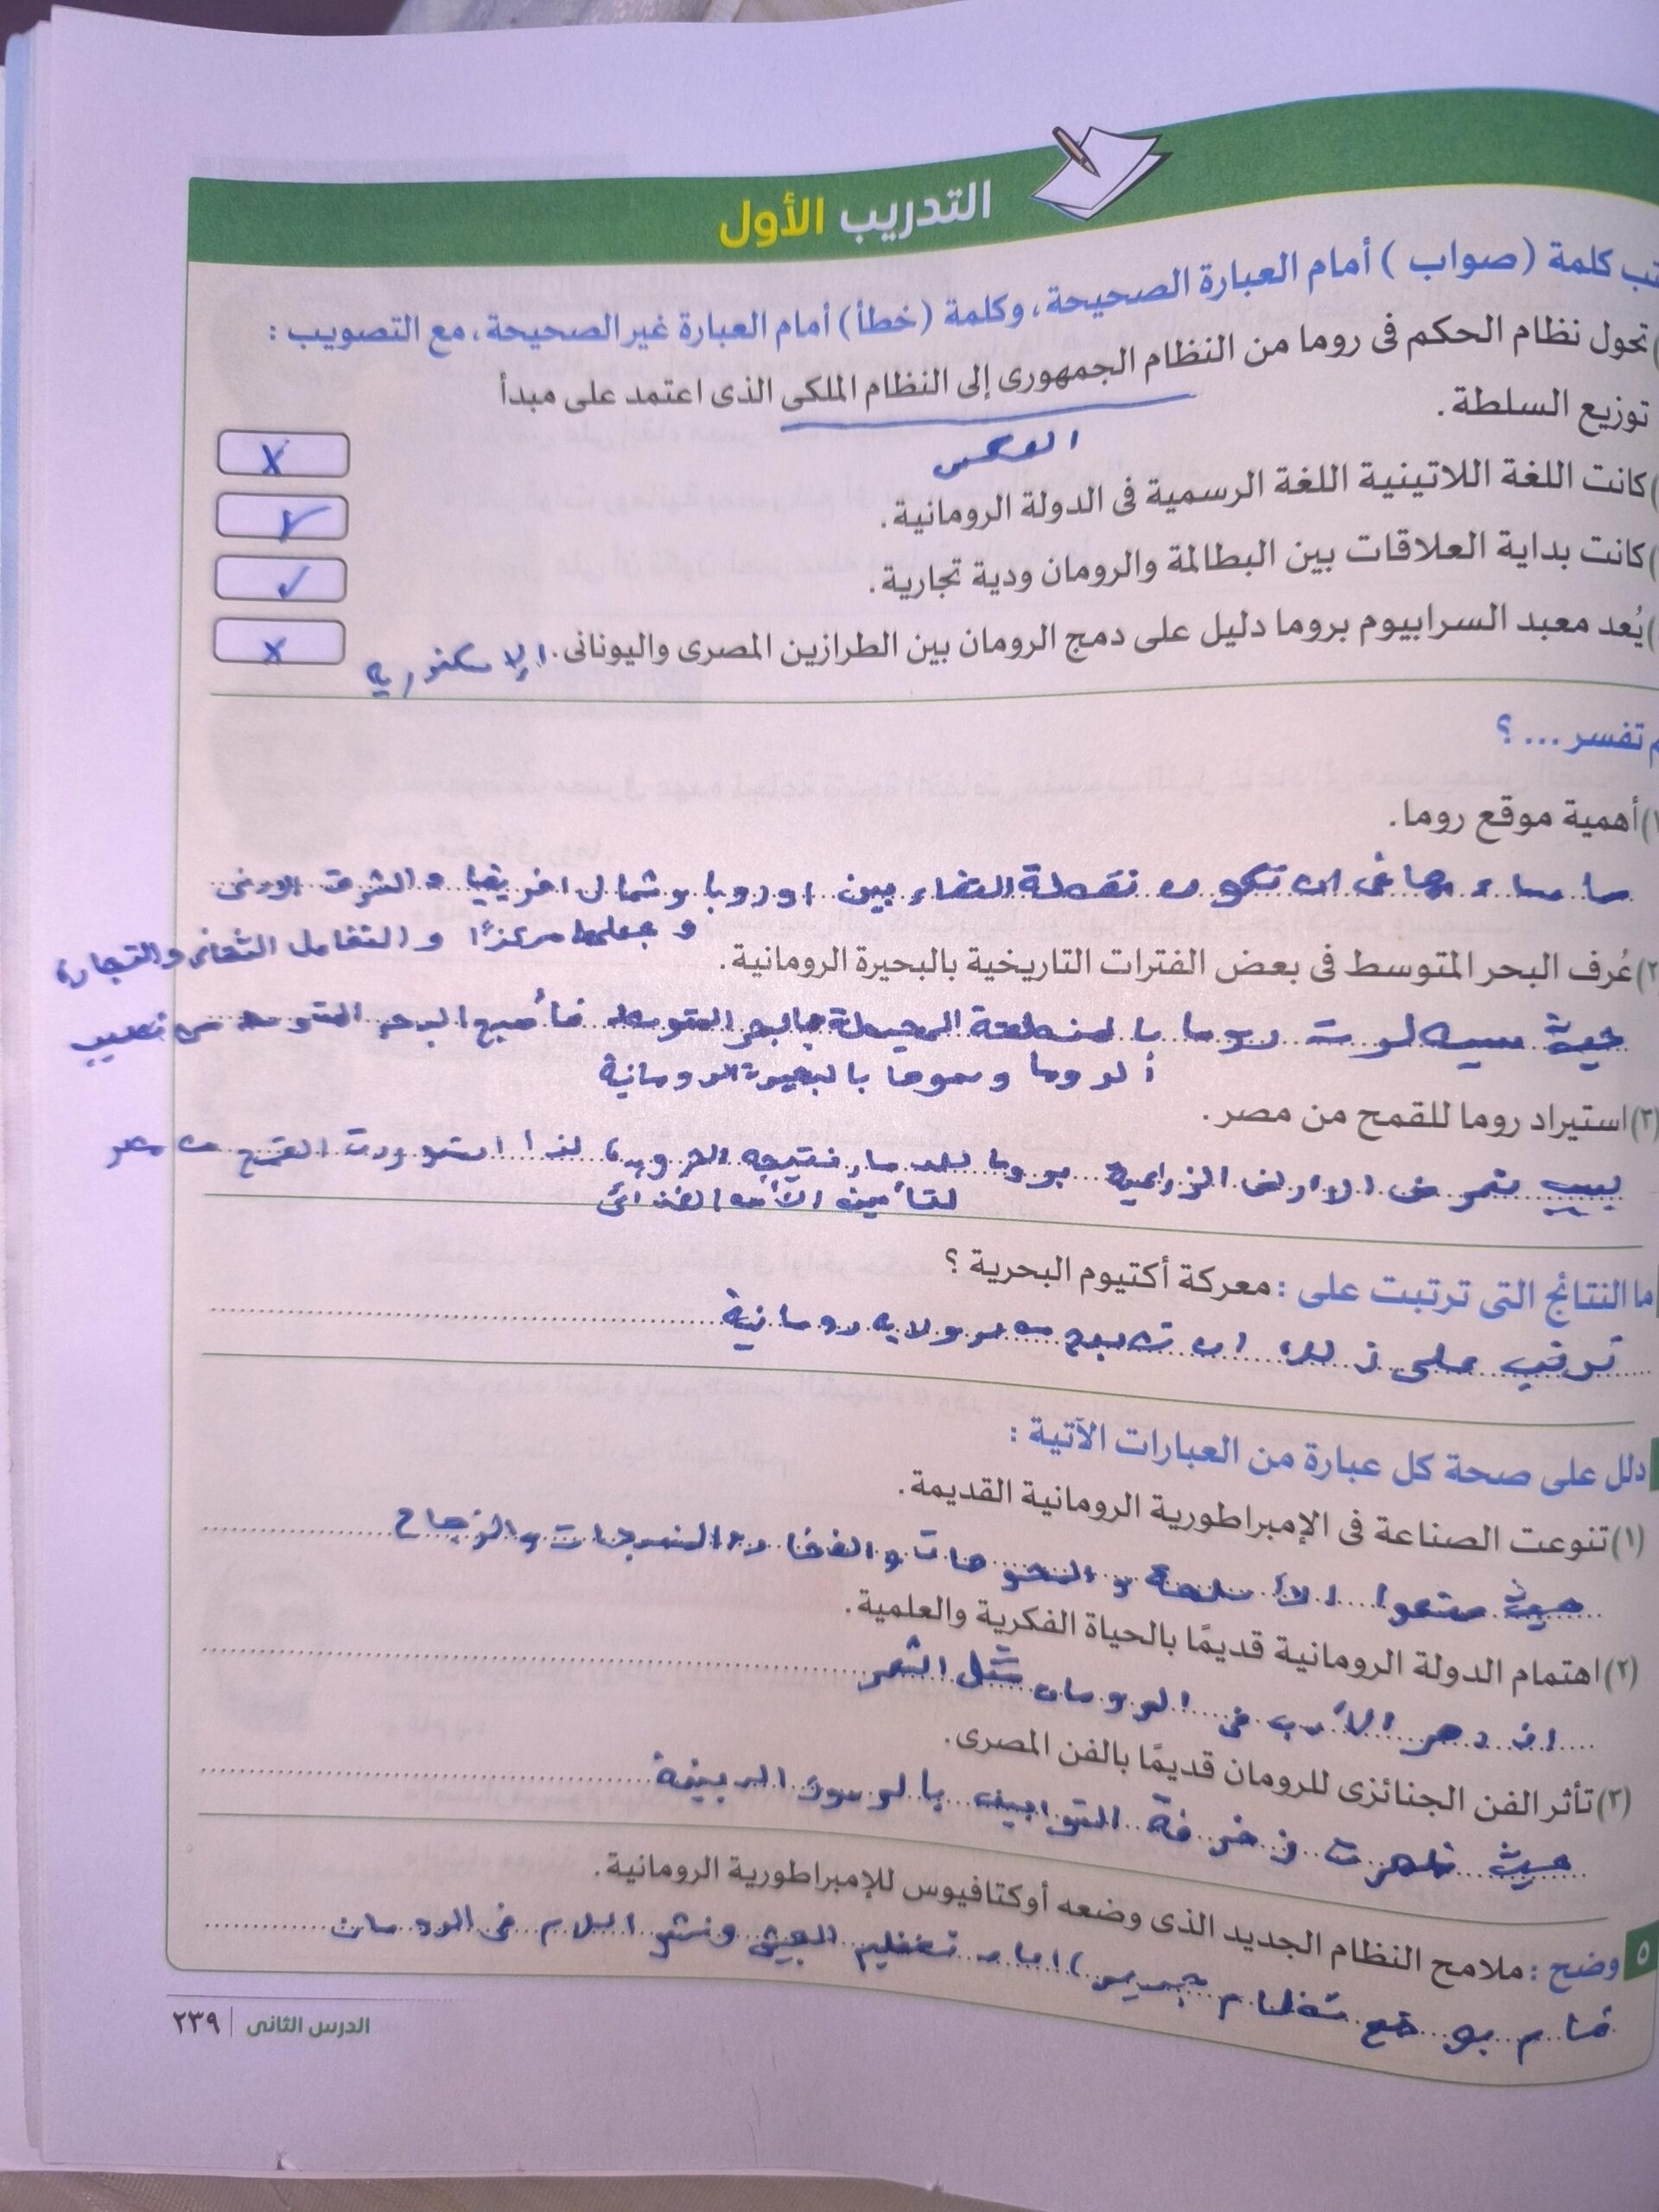 التدريب الأول
تب كلمة (صواب) أمام العبارة الصحيحة، وكلمة (خطأ) أمام العبارة غير الصحيحة، مع التصويب :
) تحول نظام الحكم فى روما من النظام الجمهورى إلى النظام الملكى الذى اعتمد على مبدأ
توزيع السلطة.
العكس
X
) كانت اللغة اللاتينية اللغة الرسمية فى الدولة الرومانية.
✓
) كانت بداية العلاقات بين البطالمة والرومان ودية تجارية.
✓
) يُعد معبد السرابيوم بروما دليل على دمج الرومان بين الطرازين المصرى واليونانى.
الإسكندرية
X
م تفسر ... ؟
) أهمية موقع روما.
فى ان تكون نقطة التقاء بين اوروبا وشمال افريقيا والشرق
وجعلها مركزًا والتفاعل الثقافى والتجارة
٢) عُرف البحر المتوسط فى بعض الفترات التاريخية بالبحيرة الرومانية.
حيث روما المحيطة بالبحر المتوسط فأصبح البحر المتوسط من نصيب
الروما وسموها بالبحيرة الرومانية
(٣) استيراد روما للقمح من مصر.
بسبب الاراضى الزراعية بروما للدمار نتيجه الحروب، لذا استوردت القمح من مصر
لتأمين الأمن الغذائى
ما النتائج التى ترتبت على : معركة أكتيوم البحرية ؟
ترتب على ذلك ان تصبح مصر ولايه رومانية
دلل على صحة كل عبارة من العبارات الآتية :
(١) تنوعت الصناعة فى الإمبراطورية الرومانية القديمة.
حيث صنعوا الأسلحة و والفخار والنسجات والزجاج
(٢) اهتمام الدولة الرومانية قديمًا بالحياة الفكرية والعلمية.
ازدهر الأدب فى الرومان مثل الشعر
(٣) تأثر الفن الجنائزى للرومان قديمًا بالفن المصرى.
حيث ظهرت زخرفة التوابيت بالرسوم الدينية
٥ وضح : ملامح النظام الجديد الذى وضعه أوكتافيوس للإمبراطورية الرومانية.
قام بوضع نظام جديد اعاد تنظيم الجيش ونشر السلام فى الرومان
الدرس الثانى | ٢٣٩